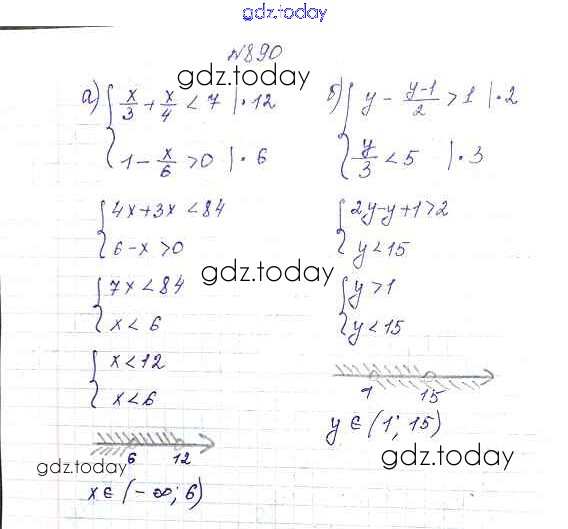 gdz.today
№890
gdz.today
а) { x/3 + x/4 < 7 | · 12
1 - x/6 > 0 | · 6
{ 4x + 3x < 84
6 - x > 0
{ 7x < 84
x < 6
{ x < 12
x < 6
6 12
x ∈ (-∞; 6)
б) { y - (y-1)/2 > 1 | · 2
y/3 < 5 | · 3
{ 2y - y + 1 > 2
y < 15
gdz.today
{ y > 1
y < 15
1 15
y ∈ (1; 15)
gdz.today
gdz.today